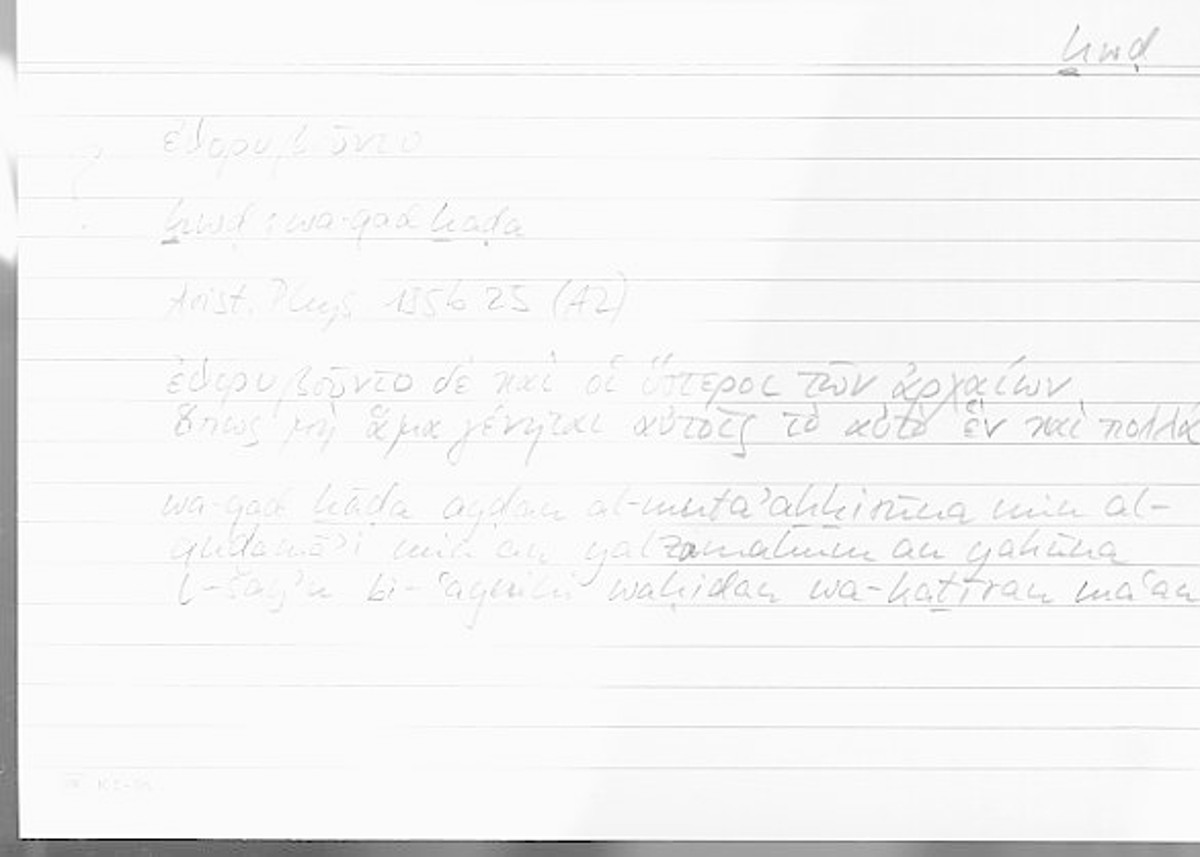 ḫwḍ
ἐθορυβοῦντο
ḫwḍ : wa-qad ḫāḍa
Arist. Phys. 185b25 (A2)
ἐθορυβοῦντο δὲ καὶ οἱ ὕστερον τῶν ἀρχαίων,
ὅπως μὴ ἅμα γένηται αὐτοῖς τὸ αὐτὸ ἓν καὶ πολλά
wa-qad ḫāḍa ayḍan al-mutaʾaḫḫirūna min al-
qudamāʾi min an yalzamahum an yakūna
l-šayʾu bi-ʿaynihi wāḥidan wa-kaṯīran maʿan